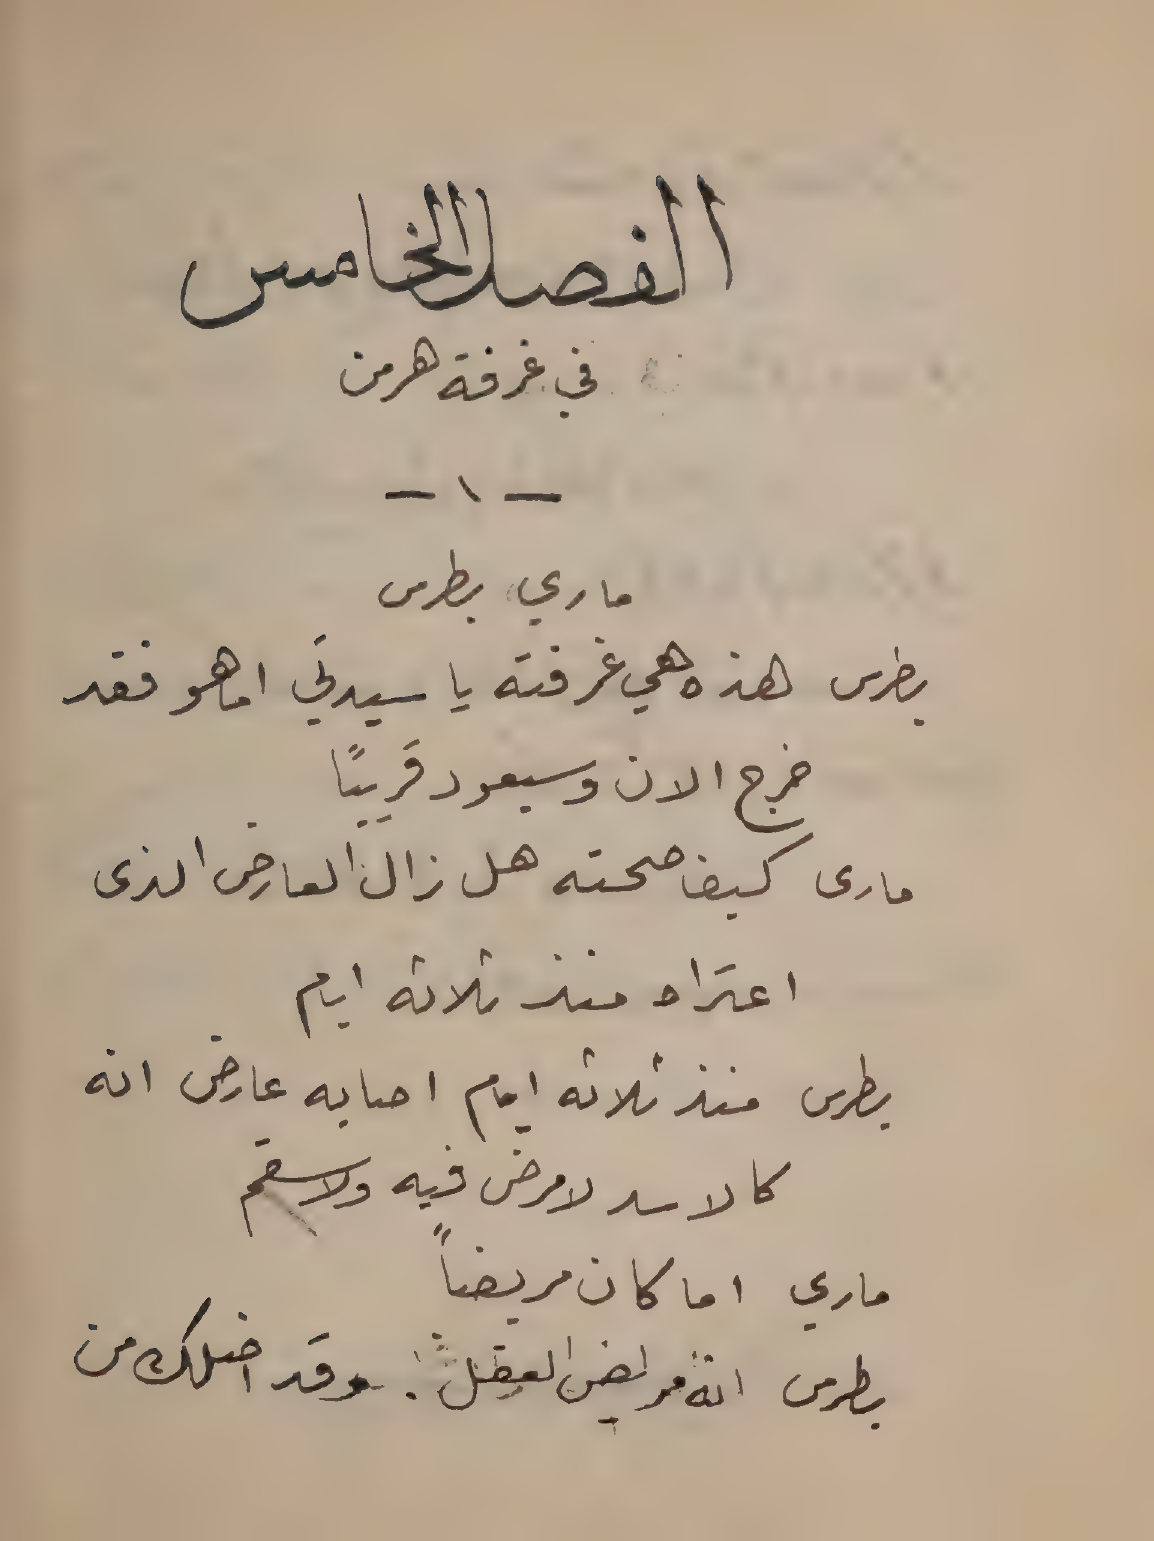 الفصل الخامس
في غرفة هرمن
— ١ —
ماري بطرس
بطرس هذه هي غرفته يا سيدتي اما هو فقد
خرج الان وسيعود قريبًا
مارى كيف صحته هل زال العارض الذى
اعتراه منذ ثلاثه ايام
بطرس منذ ثلاثه ايام اصابه عارض انه
كالاسد لا مرض فيه ولا سقم
ماري اما كان مريضاً
بطرس انه مريض العقل. وقد من